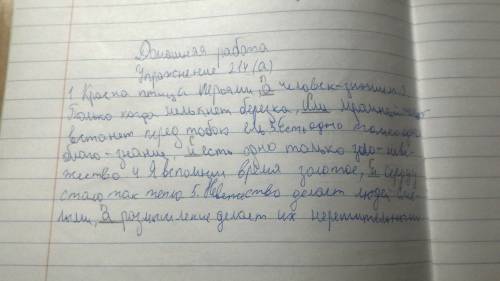 Домашняя работа
Упражнение 214 (а)
1. Красна птица перьями, а человек-знаниями 2.
Только когда мелькнет березка, или мрачной
встанет перед тобою ель 3. есть одно только
благо-знание, и есть одно только зло-неве-
жество 4. Я вспомнил время золотое, и сердцу
стало так тепло 5. Невежество делает людей сме-
лыми, а размышление делает их нерешительными